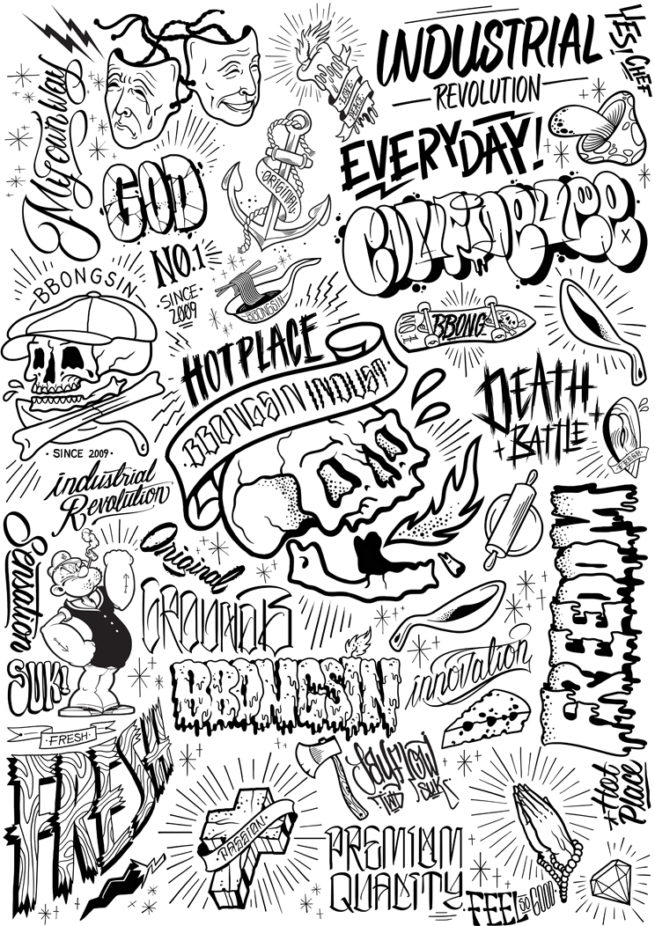 My own Way
INDUSTRIAL
REVOLUTION
YES! CHEF
EVERYDAY!
GOD
ORIGINAL
NO.1
SINCE
2009
BBONGSIN
BBONGSIN
BBONG
HOT PLACE
BBONGSIN INDUST
DEATH
BATTLE
· SINCE 2009 ·
industrial
Revolution
Sensation
Original
FREEDOM
SUK!
BBONGSIN
innovation
FRESH
FRESH
PASSION
SUK
PREMIUM
QUALITY
Hot
Place
FEEL SO GOOD